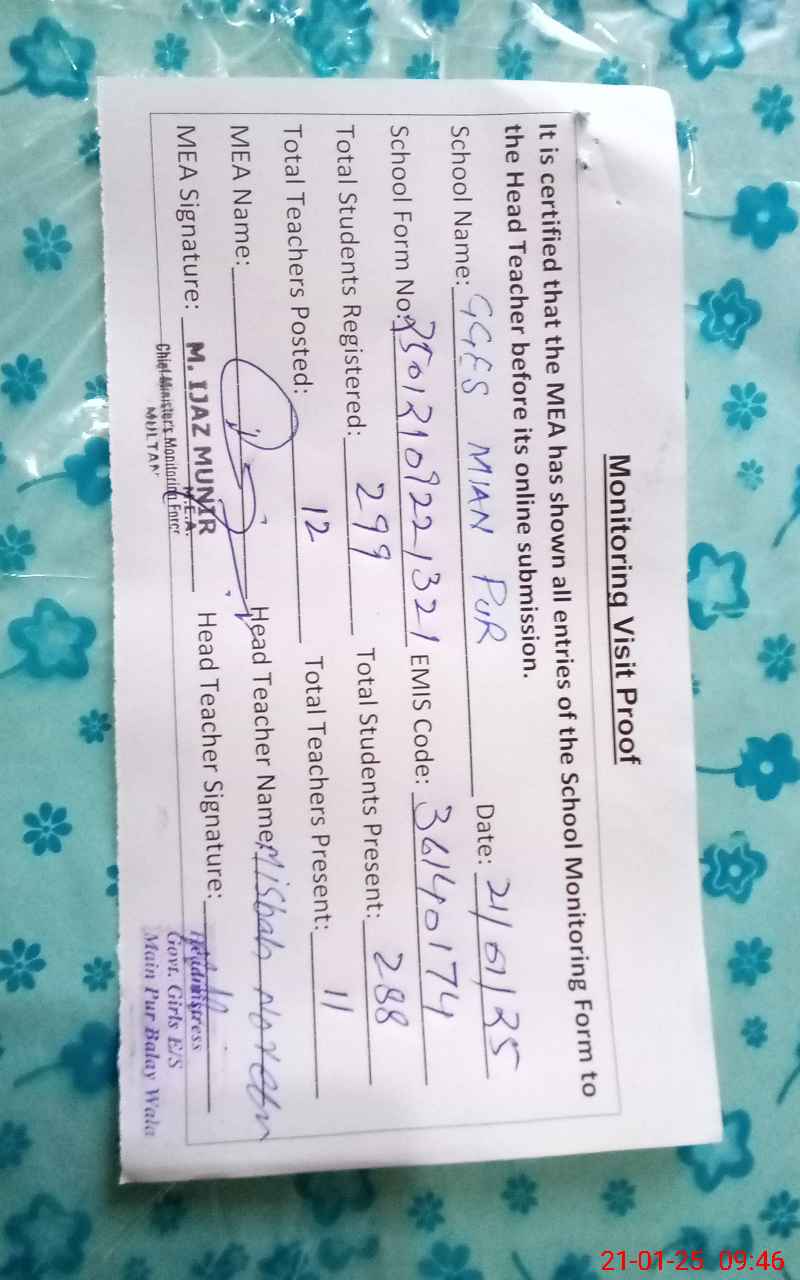 Monitoring Visit Proof
It is certified that the MEA has shown all entries of the School Monitoring Form to
the Head Teacher before its online submission.
School Name: GGES MIAN PUR Date: 21/01/25
School Form No: EMIS Code: 36140174
Total Students Registered: 299 Total Students Present: 288
Total Teachers Posted: 12 Total Teachers Present: 11
MEA Name: Head Teacher Name: Misbah
MEA Signature: Head Teacher Signature:
M. IJAZ MUNIR
M.E.A.
Chief Minister's Monitoring Force
MULTAN
Headmistress
Govt. Girls E/S
Main Pur Balay Wala
21-01-25 09:46